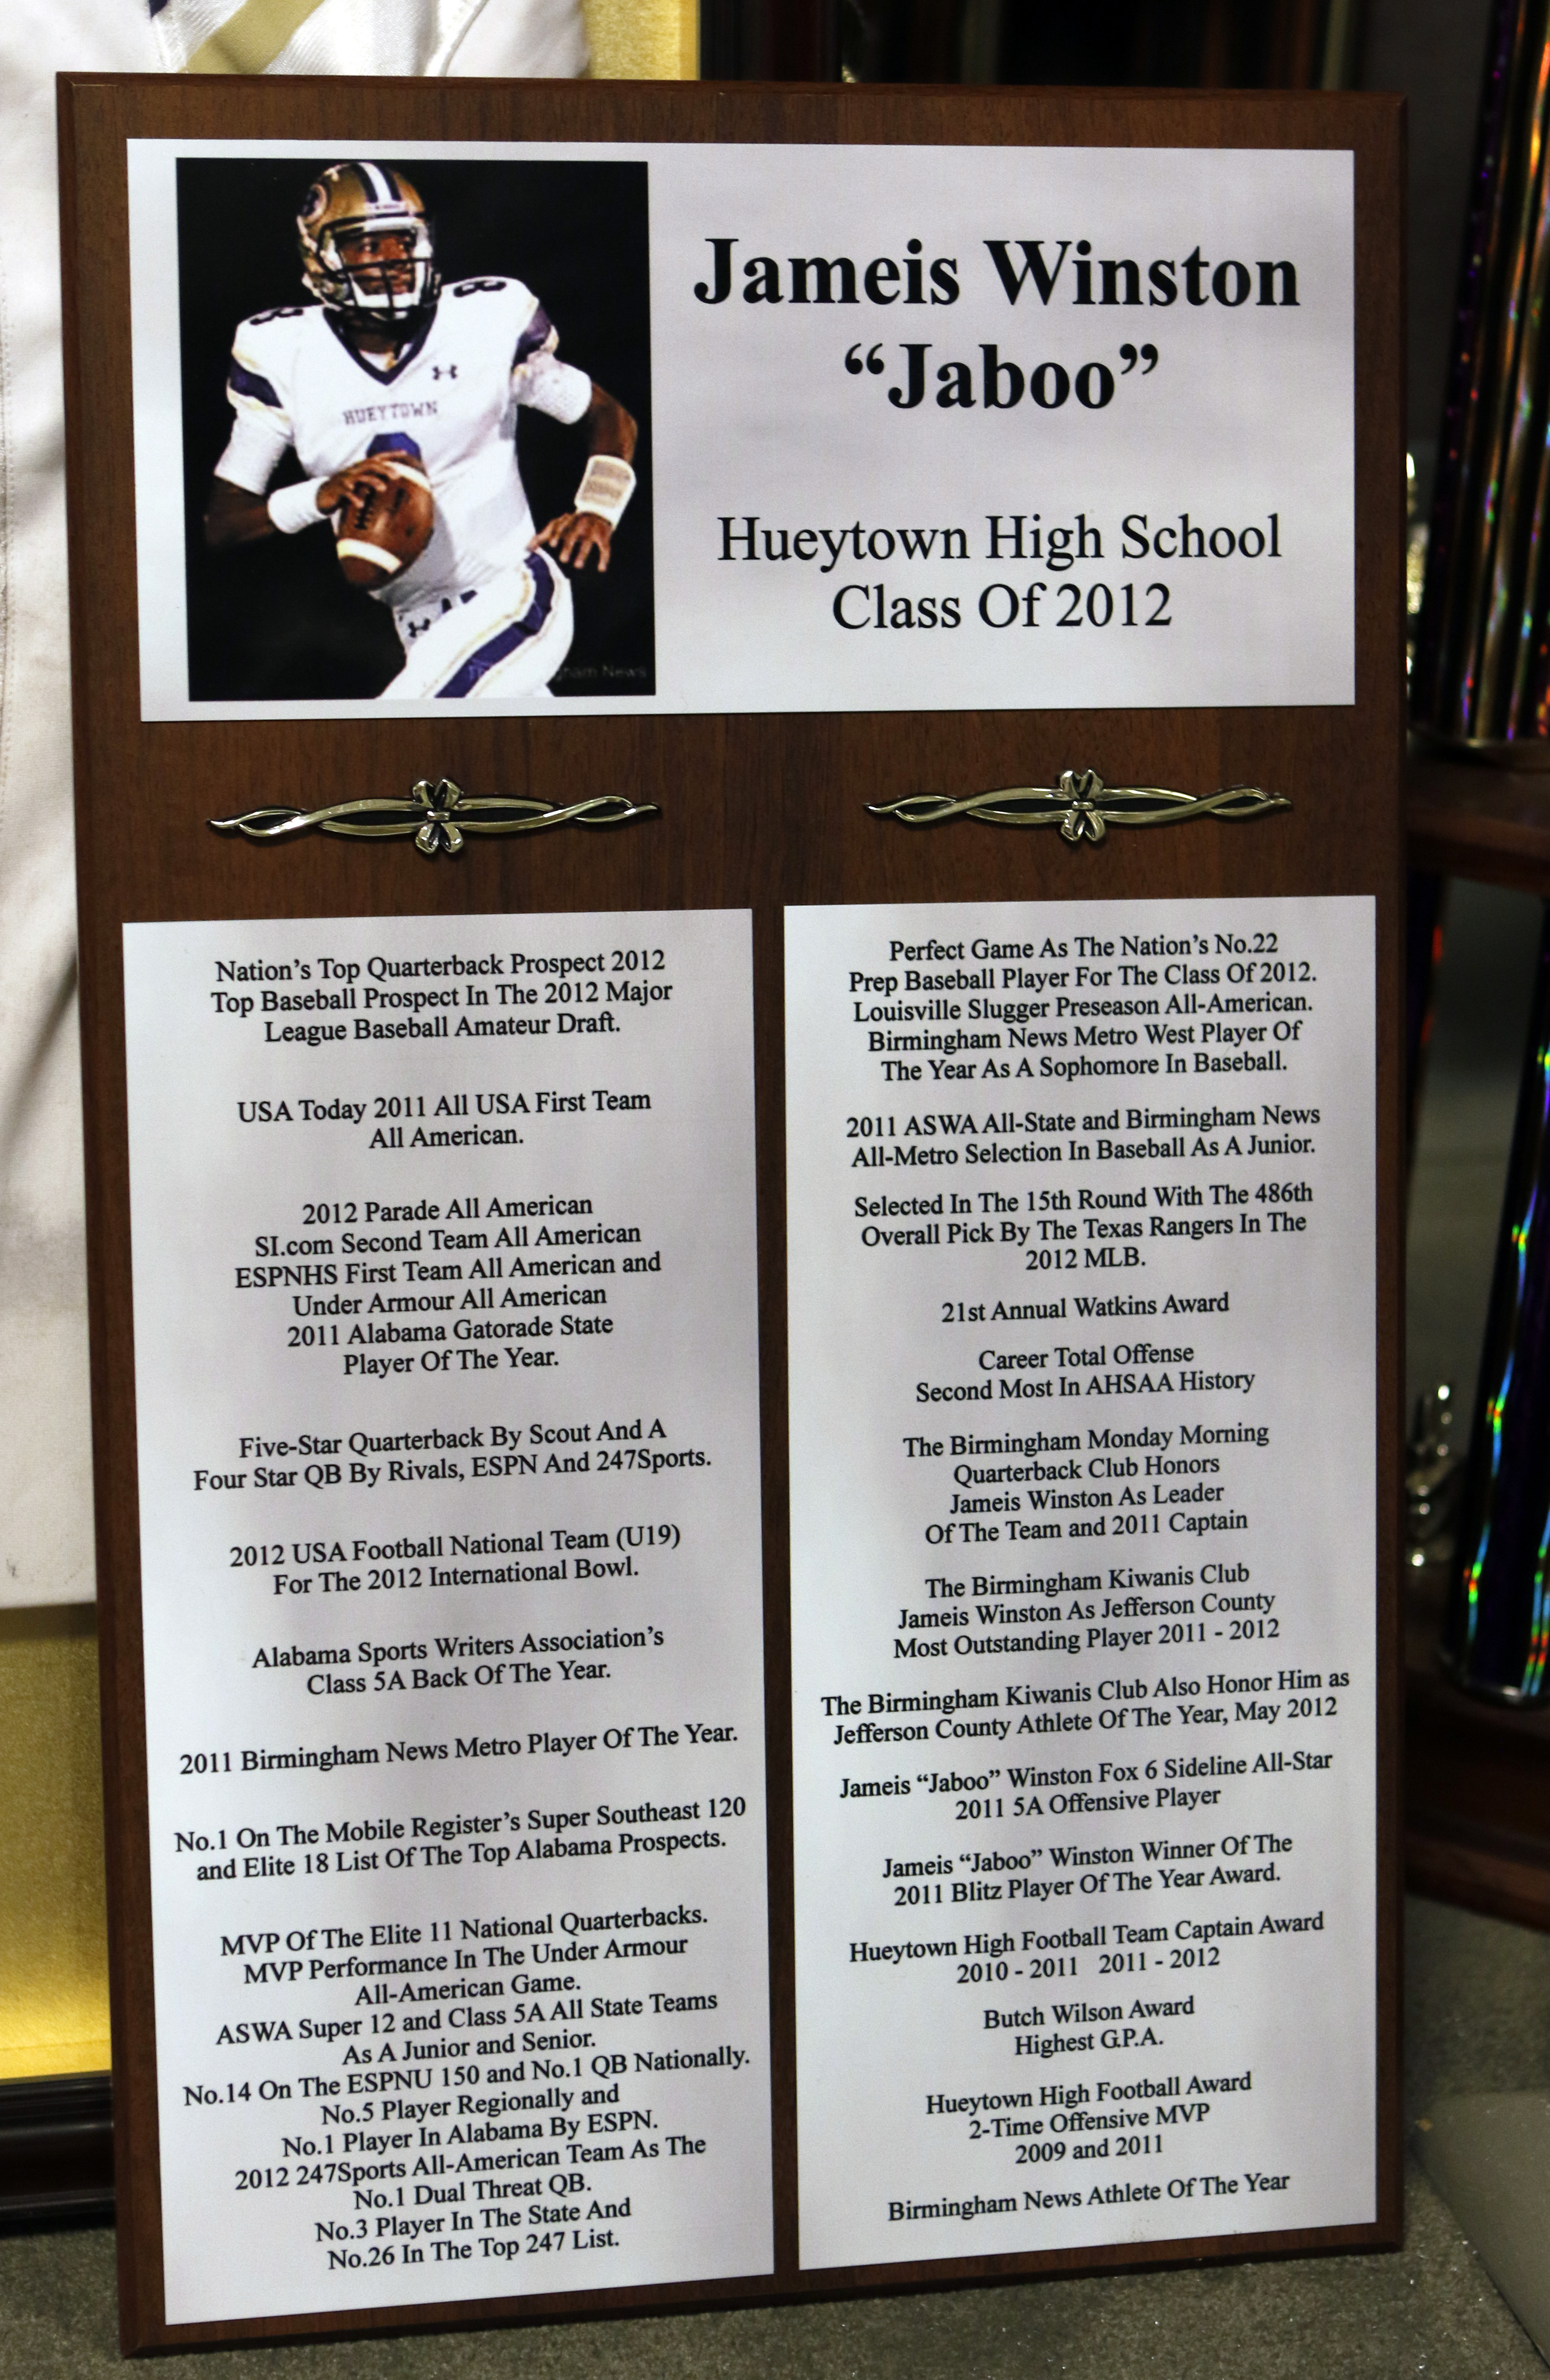 Jameis Winston
“Jaboo”
Hueytown High School
Class Of 2012
HUEYTOWN
8
8
gham News
Nation’s Top Quarterback Prospect 2012
Top Baseball Prospect In The 2012 Major
League Baseball Amateur Draft.
USA Today 2011 All USA First Team
All American.
2012 Parade All American
SI.com Second Team All American
ESPNHS First Team All American and
Under Armour All American
2011 Alabama Gatorade State
Player Of The Year.
Five-Star Quarterback By Scout And A
Four Star QB By Rivals, ESPN And 247Sports.
2012 USA Football National Team (U19)
For The 2012 International Bowl.
Alabama Sports Writers Association’s
Class 5A Back Of The Year.
2011 Birmingham News Metro Player Of The Year.
No.1 On The Mobile Register’s Super Southeast 120
and Elite 18 List Of The Top Alabama Prospects.
MVP Of The Elite 11 National Quarterbacks.
MVP Performance In The Under Armour
All-American Game.
ASWA Super 12 and Class 5A All State Teams
As A Junior and Senior.
No.14 On The ESPNU 150 and No.1 QB Nationally.
No.5 Player Regionally and
No.1 Player In Alabama By ESPN.
2012 247Sports All-American Team As The
No.1 Dual Threat QB.
No.3 Player In The State And
No.26 In The Top 247 List.
Perfect Game As The Nation’s No.22
Prep Baseball Player For The Class Of 2012.
Louisville Slugger Preseason All-American.
Birmingham News Metro West Player Of
The Year As A Sophomore In Baseball.
2011 ASWA All-State and Birmingham News
All-Metro Selection In Baseball As A Junior.
Selected In The 15th Round With The 486th
Overall Pick By The Texas Rangers In The
2012 MLB.
21st Annual Watkins Award
Career Total Offense
Second Most In AHSAA History
The Birmingham Monday Morning
Quarterback Club Honors
Jameis Winston As Leader
Of The Team and 2011 Captain
The Birmingham Kiwanis Club
Jameis Winston As Jefferson County
Most Outstanding Player 2011 - 2012
The Birmingham Kiwanis Club Also Honor Him as
Jefferson County Athlete Of The Year, May 2012
Jameis “Jaboo” Winston Fox 6 Sideline All-Star
2011 5A Offensive Player
Jameis “Jaboo” Winston Winner Of The
2011 Blitz Player Of The Year Award.
Hueytown High Football Team Captain Award
2010 - 2011 2011 - 2012
Butch Wilson Award
Highest G.P.A.
Hueytown High Football Award
2-Time Offensive MVP
2009 and 2011
Birmingham News Athlete Of The Year